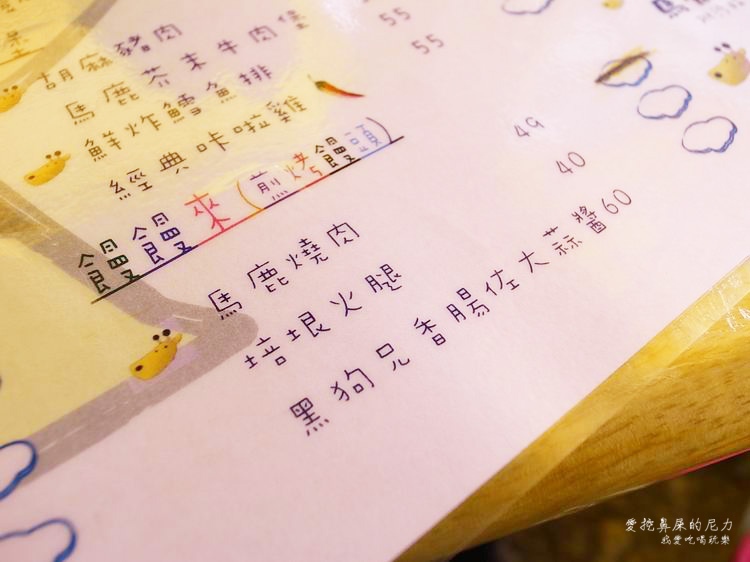 胡麻豬肉 55
馬鹿芥末牛肉堡 55
鮮炸鱈魚排
經典咔啦雞
饅饅來(煎烤饅頭)
馬鹿燒肉 49
培根火腿 40
黑狗兄香腸佐大蒜醬60
愛挖鼻屎的尼力
我愛吃喝玩樂